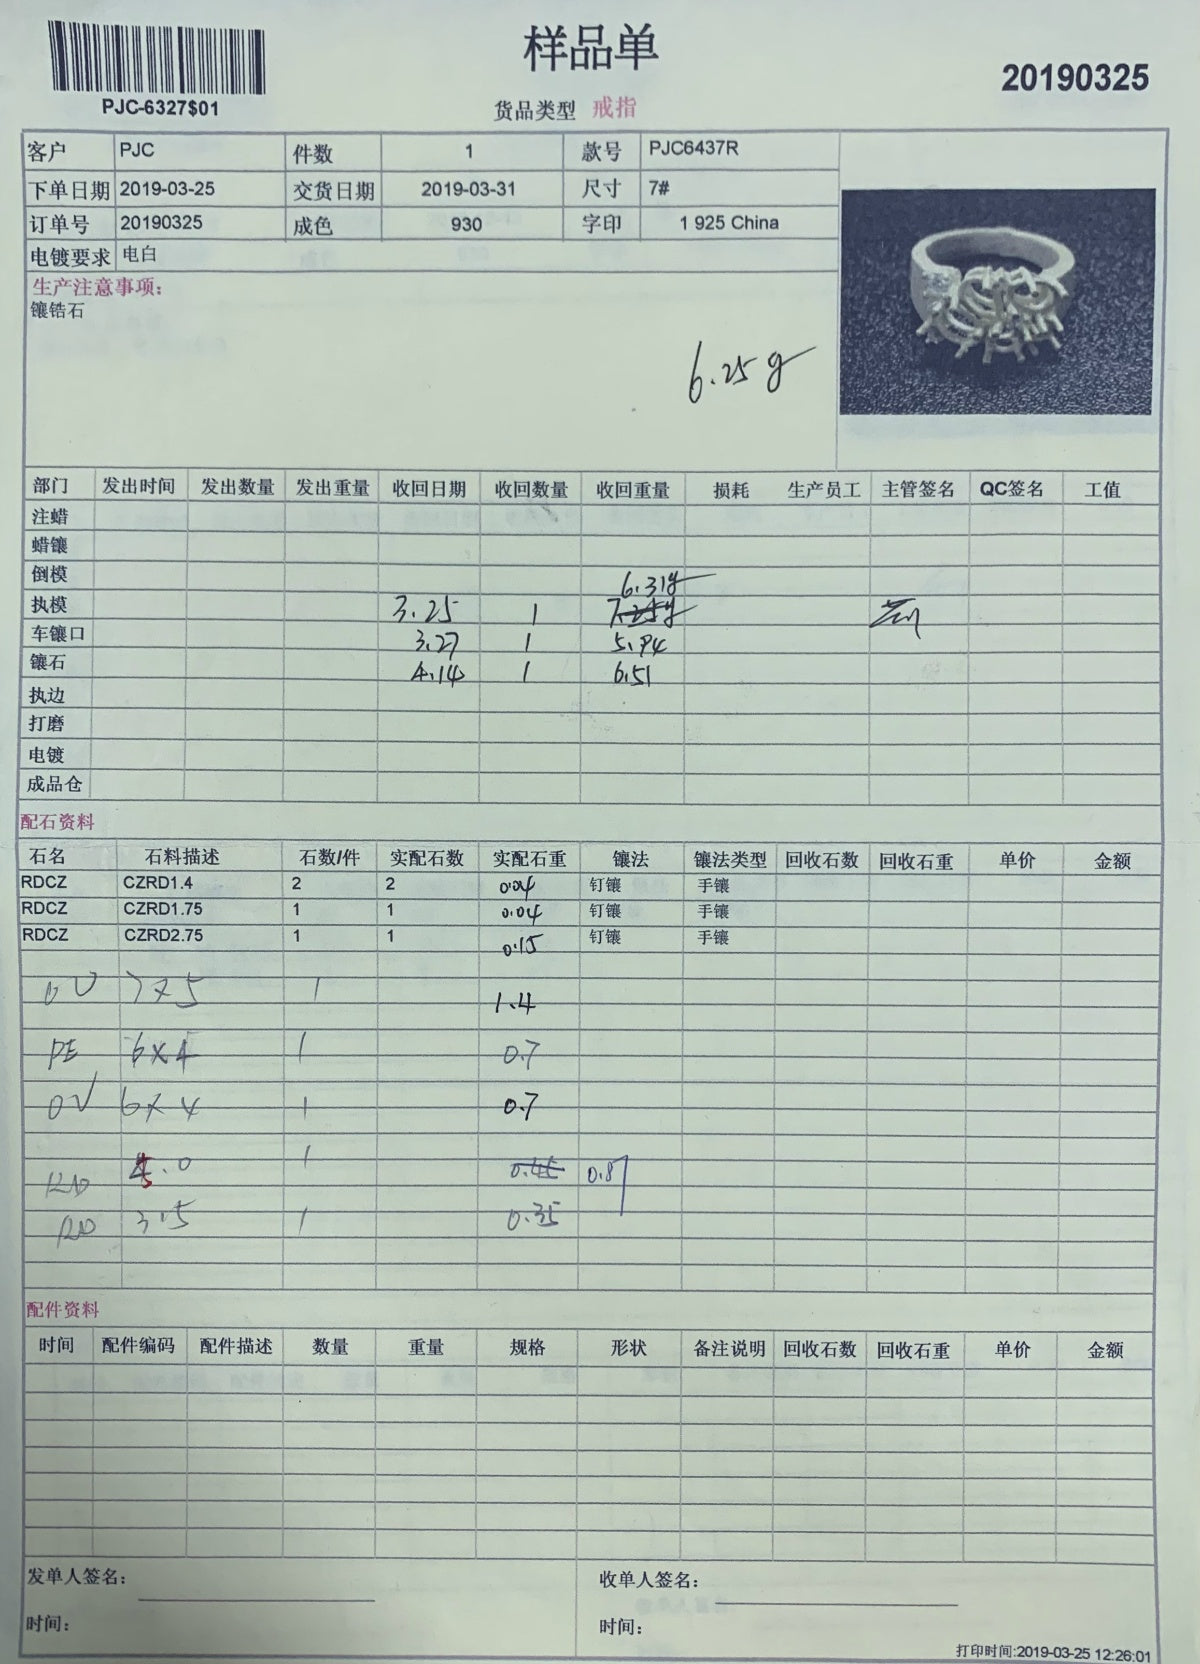 样品单
PJC-6327$01
货品类型 戒指
20190325
客户 PJC 件数 1 款号 PJC6437R
下单日期 2019-03-25 交货日期 2019-03-31 尺寸 7#
订单号 20190325 成色 930 字印 1 925 China
电镀要求 电白
生产注意事项:
镶锆石
6.25g
部门 发出时间 发出数量 发出重量 收回日期 收回数量 收回重量 损耗 生产员工 主管签名 QC签名 工值
注蜡
蜡镶
倒模
6.31g
执模 3.25 1 7.25g
车镶口 3.27 1 5.94
镶石 4.14 1 6.51
执边
打磨
电镀
成品仓
配石资料
石名 石料描述 石数/件 实配石数 实配石重 镶法 镶法类型 回收石数 回收石重 单价 金额
RDCZ CZRD1.4 2 2 0.04 钉镶 手镶
RDCZ CZRD1.75 1 1 0.04 钉镶 手镶
RDCZ CZRD2.75 1 1 0.15 钉镶 手镶
OV 7x5 1 1.4
PE 6x4 1 0.7
OV 6x4 1 0.7
RD .0 1 0.45 0.87
RD 3.5 1 0.35
配件资料
时间 配件编码 配件描述 数量 重量 规格 形状 备注说明 回收石数 回收石重 单价 金额
发单人签名:
收单人签名:
时间:
时间:
打印时间:2019-03-25 12:26:01